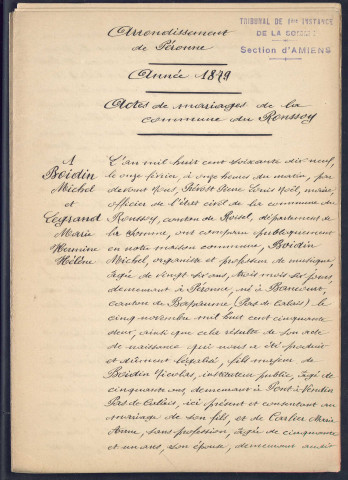 Arrondissement
de Péronne
TRIBUNAL DE 1ère INSTANCE
DE LA SOMME
Section d'AMIENS
Année 1879
Actes de mariages de la
commune du Ronssoy
1
Boidin
Michel
et
Legrand
Marie
Hermine
Hélène
L'an mil huit cent soixante dix neuf,
le onze février, à onze heures du matin, par
devant Nous, Prévost Louis Noël, maire,
officier de l'état civil de la commune du
Ronssoy, canton de Roisel, département de
la Somme, ont comparu publiquement
en notre maison commune, Boidin
Michel, organiste et professeur de musique,
âgé de vingt six ans, trois mois six jours,
demeurant à Péronne, né à Bancourt,
canton de Bapaume (Pas de Calais) le
cinq novembre mil huit cent cinquante
deux, ainsi que cela résulte de son acte
de naissance qui nous a été produit
et dûment légalisé, fils majeur de
Boidin Nicolas, instituteur public, âgé de
cinquante ans demeurant à Pont à Vendin
Pas de Calais, ici présent et consentant au
mariage de son fils, et de Carlier Marie
Anne, sans profession, âgée de cinquante
et un ans, son épouse, demeurant aussi